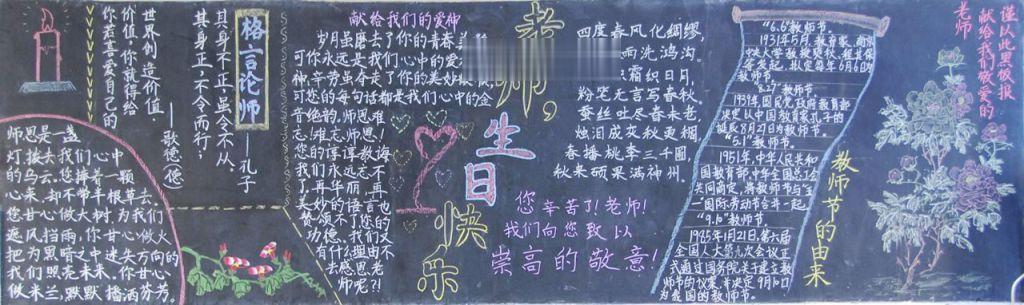 世界创造价值
价值,你就得给
你若喜爱自己的
——歌德
格言论师
其身不正,虽令不从。
其身正,不令而行;
——孔子
师恩是一盏
灯拨去我们心中
的乌云。您捧着一
心来,却不带半根草去,
您甘心做大树,为我们
遮风挡雨,你甘心做火
把为黑暗之中迷失方向的
我们照亮未来。你甘心
做米兰,默默播洒芬芳。
献给我们的爱神
岁月虽磨去了你的青春
可你永远是我们心中的爱
神,辛劳虽夺走了你的美妙
可您的每句话都是我们心中的金
音绝韵。师恩难
忘!难忘师恩!
您的谆谆教诲
我们永不忘
老师,
生日
快乐
四度春风化绸缪,
雨洗鸿沟。
霜织日月,
粉笔无言写春秋。
蚕丝吐尽春未老,
烛泪成灰秋更稠。
春播桃李三千圃,
秋来硕果满神州。
您辛苦了!老师!
我们向您致以
崇高的敬意!
教师节的由来
“6.6”教师节。
1931年5月,教育家、
中央大学教授
等发起,拟定每年6月6日
教师节。
“8.27”教师节。
1939年国民党政府教育部
决定以中国教育家孔子的
诞辰8月27日为教师节。
“5.1”教师节。
1951年,中华人民共和
国教育部、中华全国总工会
共同商定,将教师节与“五
一”国际劳动节合并一起
“9.10”教师节
1985年1月21日,第六届
全国人大第九次会议正
式通过国务院关于建立教
师节的议案,并决定9月10日
为我国的教师节。
谨以此黑板报
献给我们敬爱的
老师